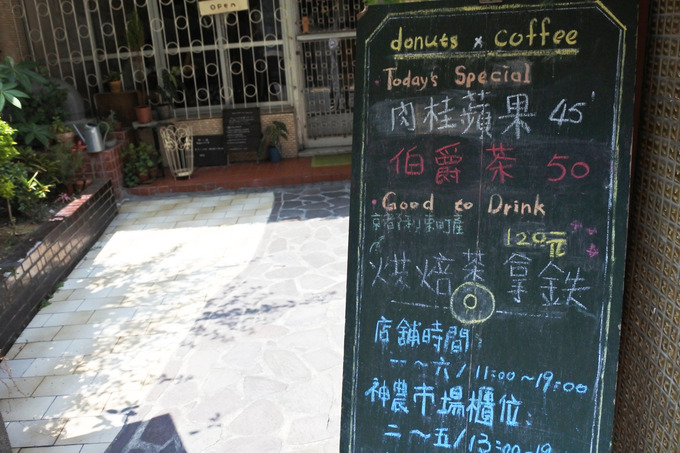 OPEN
donuts x coffee
Today's Special
肉桂蘋果 45
伯爵茶 50
Good to Drink
東町產
120元
烘焙茶拿鉄
店舖時間:
一～六/11:00～19:00
神農市場櫃位:
二～五/13:00～19